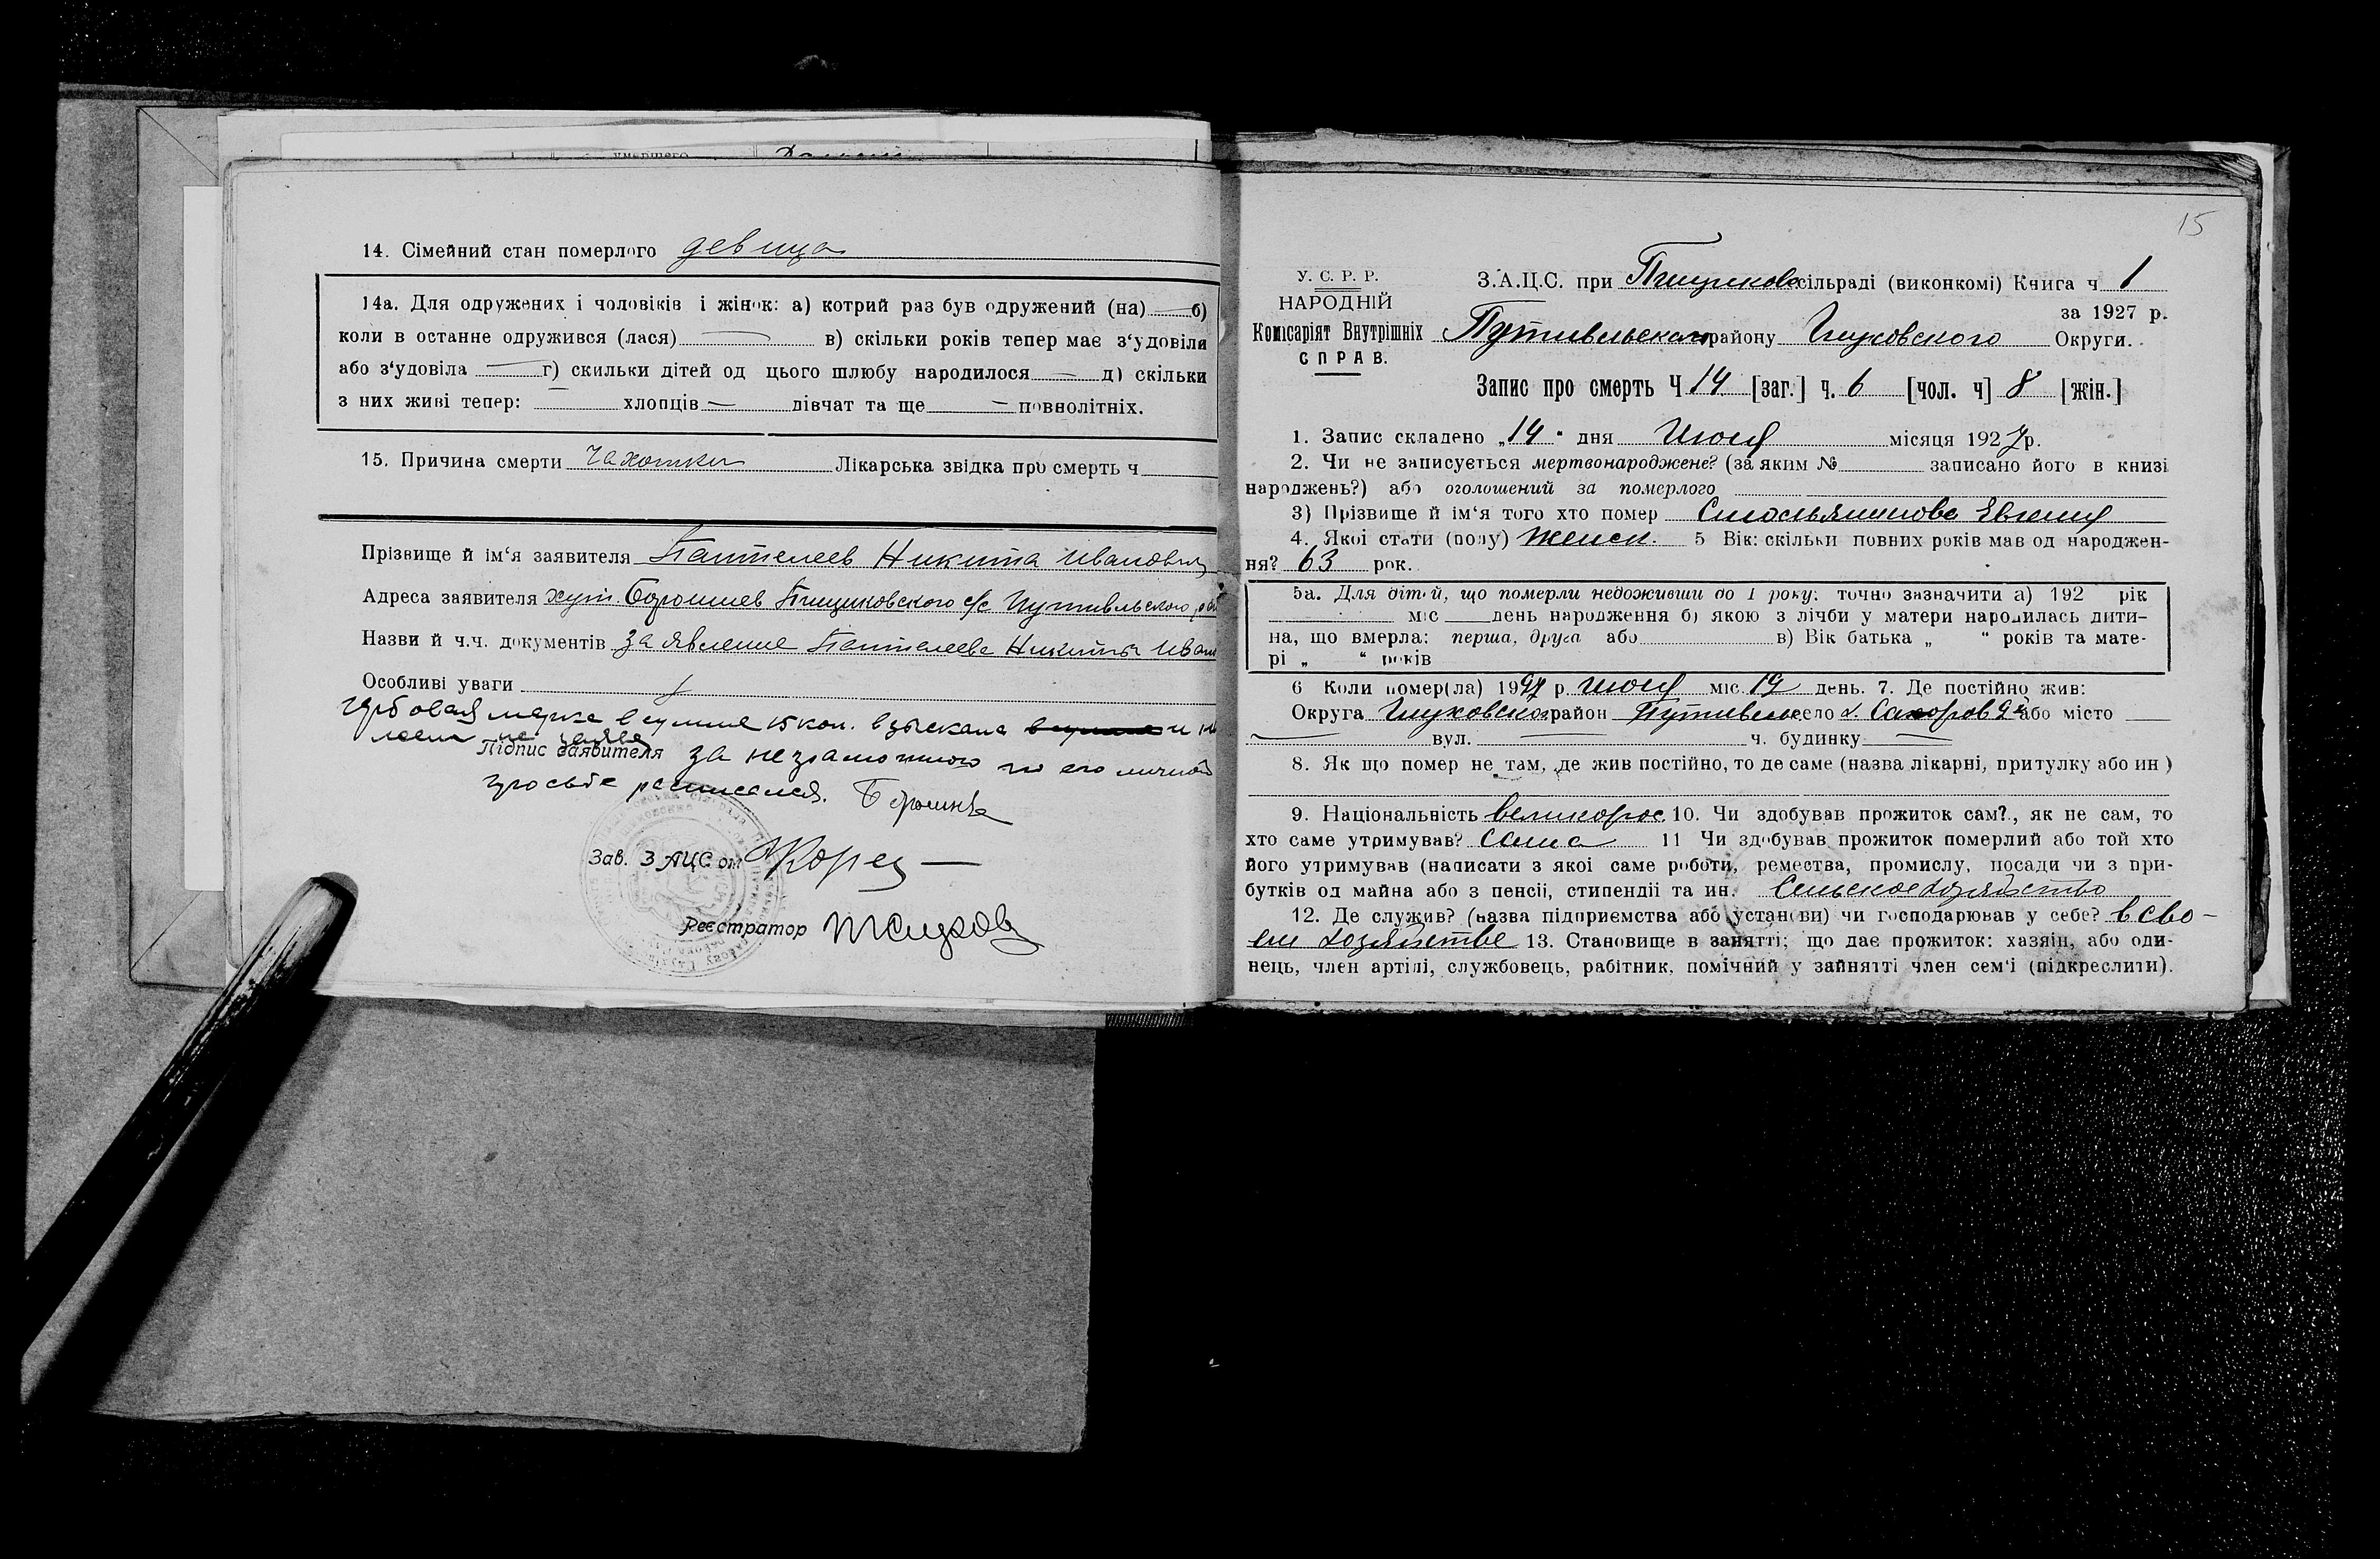 14. Сімейний стан померлого девица
14а. Для одружених і чоловіків і жінок: а) котрий раз був одружений (на) — б)
коли в останне одружився (лася) — в) скільки років тепер має з‘удовіли
або з‘удовіла — г) скильки дітей од цього шлюбу народилося — д) скільки
з них живі тепер: — хлопців — дівчат та ще — повнолітніх.
15. Причина смерти чахотки Лікарська звідка про смерть ч
Прізвище й ім‘я заявителя Пантелеев Никита Иванович
Адреса заявителя хут. Борошнев Пищиковского с/с Путивльского рай
Назви й ч.ч. документів Заявление Пантелеева Никиты Иван
Особливі уваги
Гербовая марка в сумме 15 коп. взыскана в сумме и
не заяв
Підпис заявителя За неграмотного по его личной
просьбе расписался.
Зав. ЗАЦС ом
Реєстратор
15
У. С. Р. Р.
НАРОДНІЙ
Комісаріят Внутрішніх
СПРАВ.
З.А.Ц.С. при Пищиковс сільраді (виконкомі) Книга ч 1
за 1927 р.
Путивльского району Глуховского Округи.
Запис про смерть Ч 14 [заг.] ч. 6 [чол. ч] 8 [жін.]
1. Запис складено „14“ дня Июля місяця 1927 р.
2. Чи не записується мертвонароджене? (за яким № записано його в книзі
народжень?) або оголошений за померлого
3) Прізвище й ім‘я того хто помер Смольянинова Евгения
4. Якоі стати (полу) Женск. 5 Вік: скільки повних років мав од народжен-
ня? 63 рок.
5а. Для дітей, що померли недоживши до 1 року: точно зазначити а) 192 рік
міс день народження б) якою з лічби у матери народилась дити-
на, що вмерла: перша, друга або в) Вік батька „ “ років та мате-
рі „ “ років
6 Коли помер(ла) 1927 р. Июля міс. день. 7. Де постійно жив:
Округа Глуховского район Путивльс село або місто —
— вул. — ч. будинку —
8. Як що помер не там, де жив постійно, то де саме (назва лікарні, притулку або ин)
9. Національність великорос 10. Чи здобував прожиток сам?, як не сам, то
хто саме утримував? Сама 11 Чи здобував прожиток померлий або той хто
його утримував (написати з якоі саме роботи, ремества, промислу, посади чи з при-
бутків од майна або з пенсіі, стипендіі та ин. Сельское хозяйство
12. Де служив? (назва підприємства або установи) чи господарював у себе? в сво-
ем хозяйстве 13. Становище в занятті; що дає прожиток: хазяін, або оди-
нець, член артілі, службовець, рабітник, помічний у зайнятті член сем‘і (підкреслити).